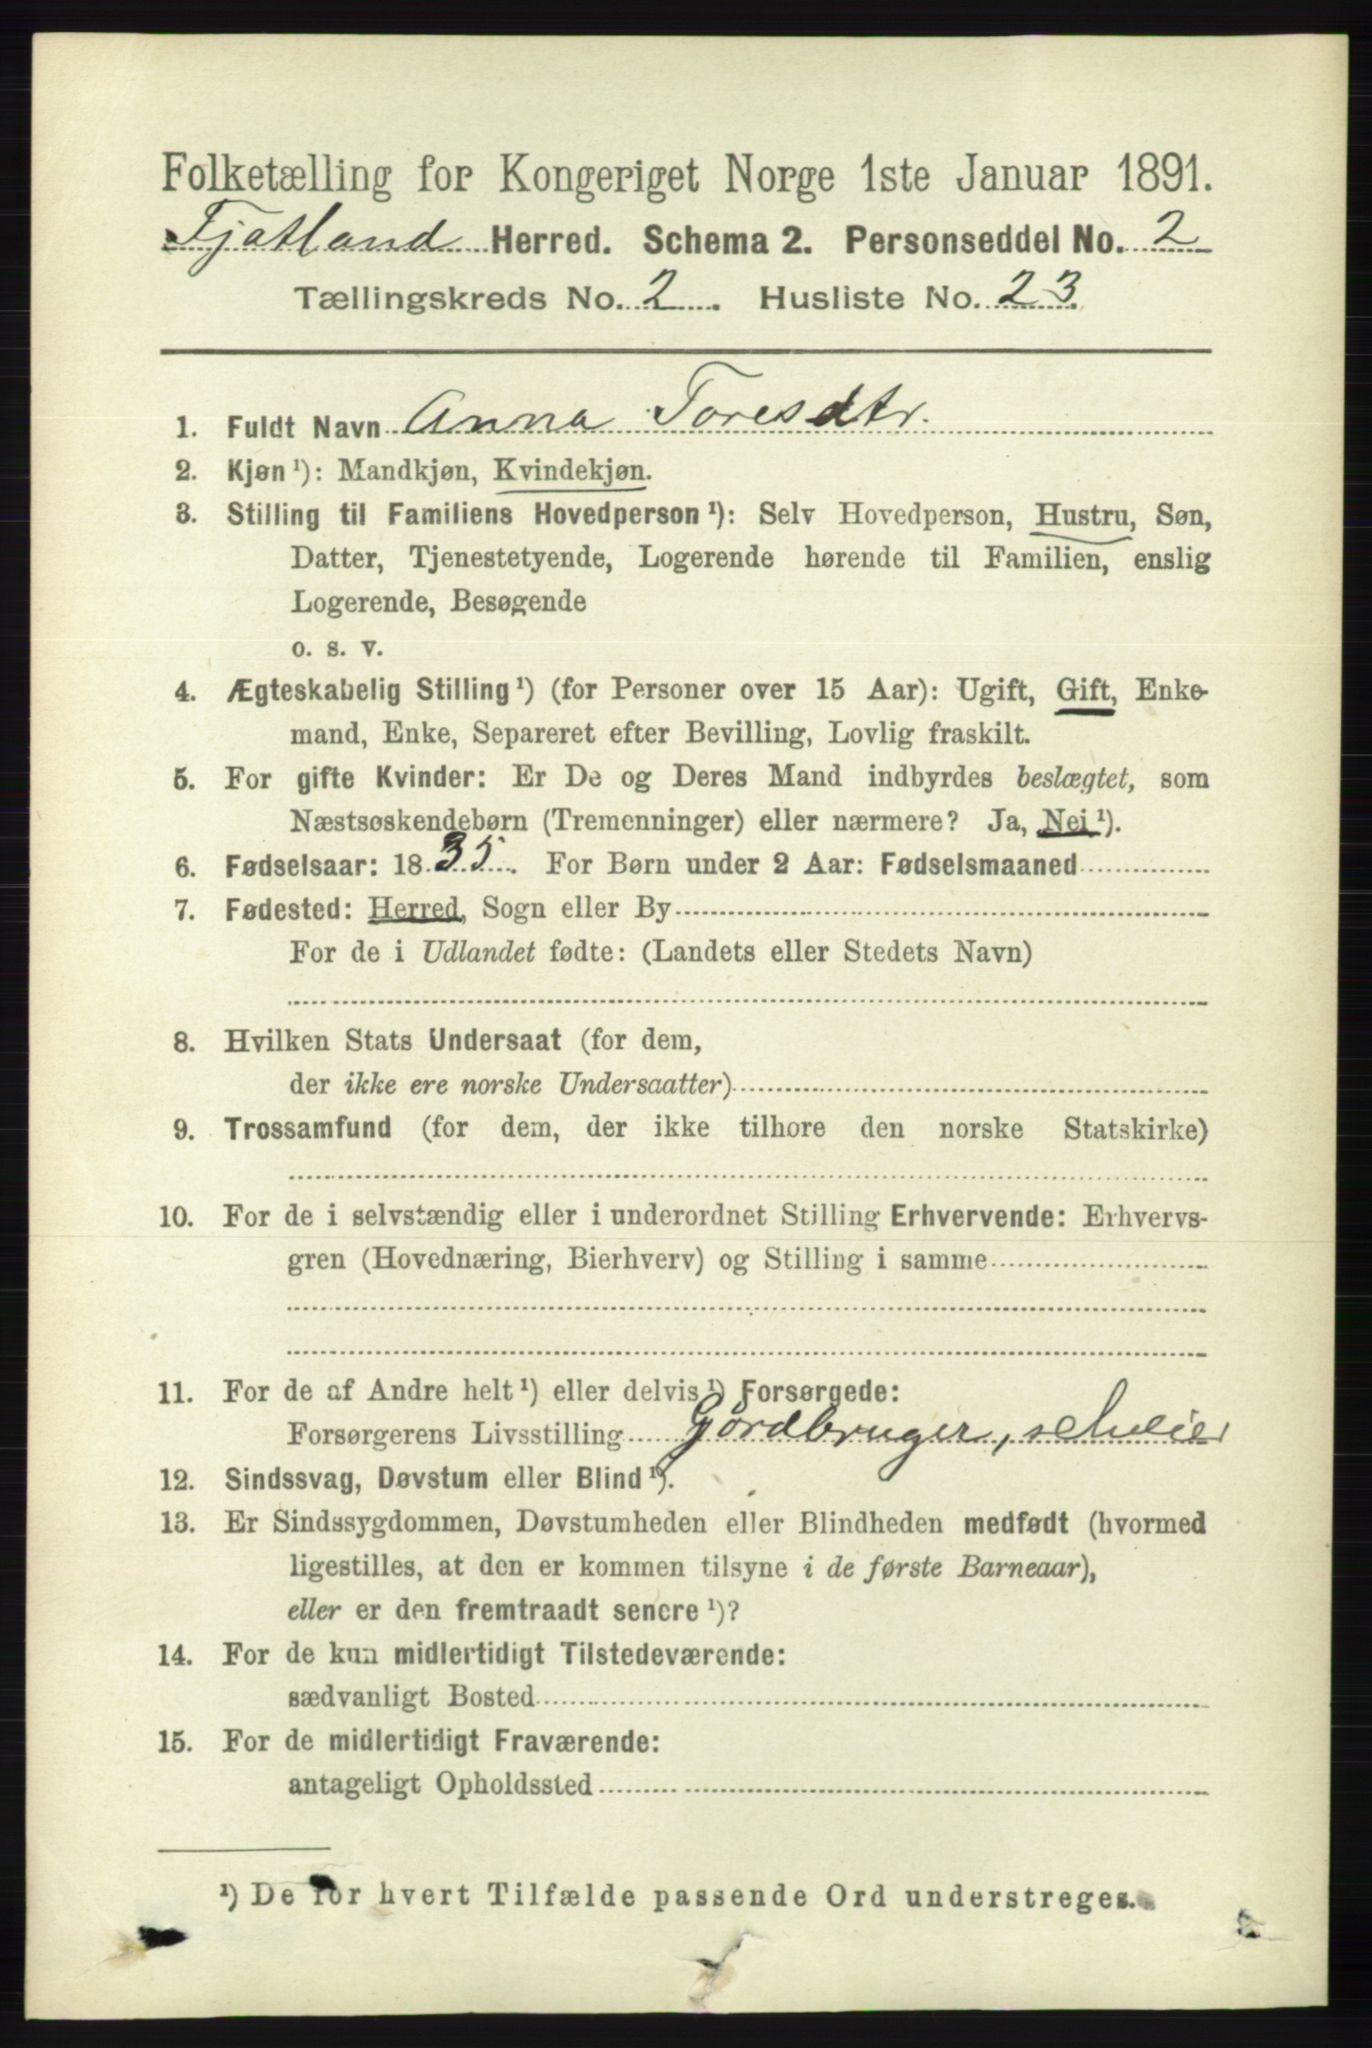 Folketælling for Kongeriget Norge 1ste Januar 1891.
Fjotland Herred. Schema 2. Personseddel No. 2
Tællingskreds No. 2. Husliste No. 23.
1. Fuldt Navn Anna Toresdtr.
2. Kjøn¹): Mandkjøn, Kvindekjøn.
3. Stilling til Familiens Hovedperson¹): Selv Hovedperson, Hustru, Søn,
Datter, Tjenestetyende, Logerende hørende til Familien, enslig
Logerende, Besøgende
o. s. v.
4. Ægteskabelig Stilling¹) (for Personer over 15 Aar): Ugift, Gift, Enke-
mand, Enke, Separeret efter Bevilling, Lovlig fraskilt.
5. For gifte Kvinder: Er De og Deres Mand indbyrdes beslægtet, som
Næstsøskendebørn (Tremenninger) eller nærmere? Ja, Nei¹).
6. Fødselsaar: 1835. For Børn under 2 Aar: Fødselsmaaned
7. Fødested: Herred, Sogn eller By
For de i Udlandet fødte: (Landets eller Stedets Navn)
8. Hvilken Stats Undersaat (for dem,
der ikke ere norske Undersaatter)
9. Trossamfund (for dem, der ikke tilhøre den norske Statskirke)
10. For de i selvstændig eller i underordnet Stilling Erhvervende: Erhvervs-
gren (Hovednæring, Bierhverv) og Stilling i samme
11. For de af Andre helt¹) eller delvis¹) Forsørgede:
Forsørgerens Livsstilling Gårdbruger, selveier
12. Sindssvag, Døvstum eller Blind¹).
13. Er Sindssygdommen, Døvstumheden eller Blindheden medfødt (hvormed
ligestilles, at den er kommen tilsyne i de første Barneaar),
eller er den fremtraadt senere¹)?
14. For de kun midlertidigt Tilstedeværende:
sædvanligt Bosted
15. For de midlertidigt Fraværende:
antageligt Opholdssted
¹) De for hvert Tilfælde passende Ord understreges.